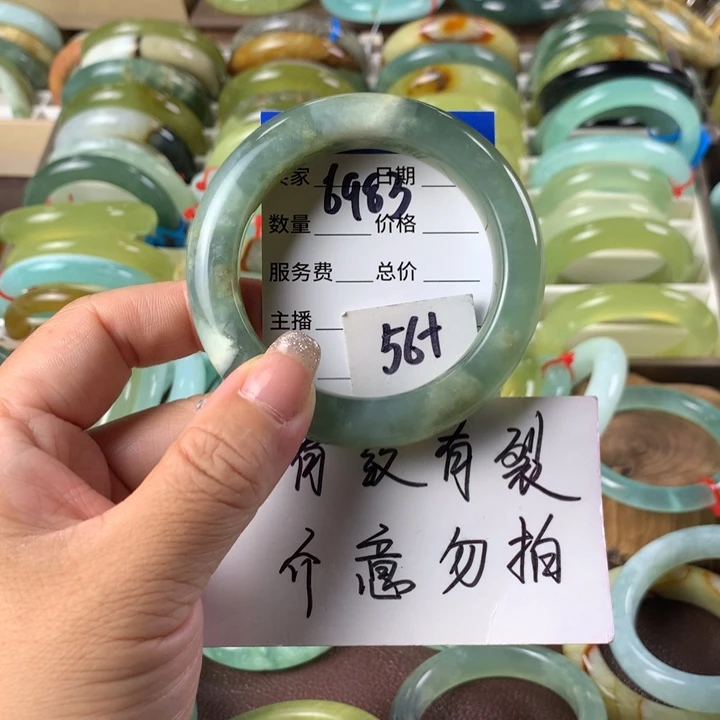 家 6983 日期
数量 价格
服务费 总价
主播
56+
有纹有裂
介意勿拍